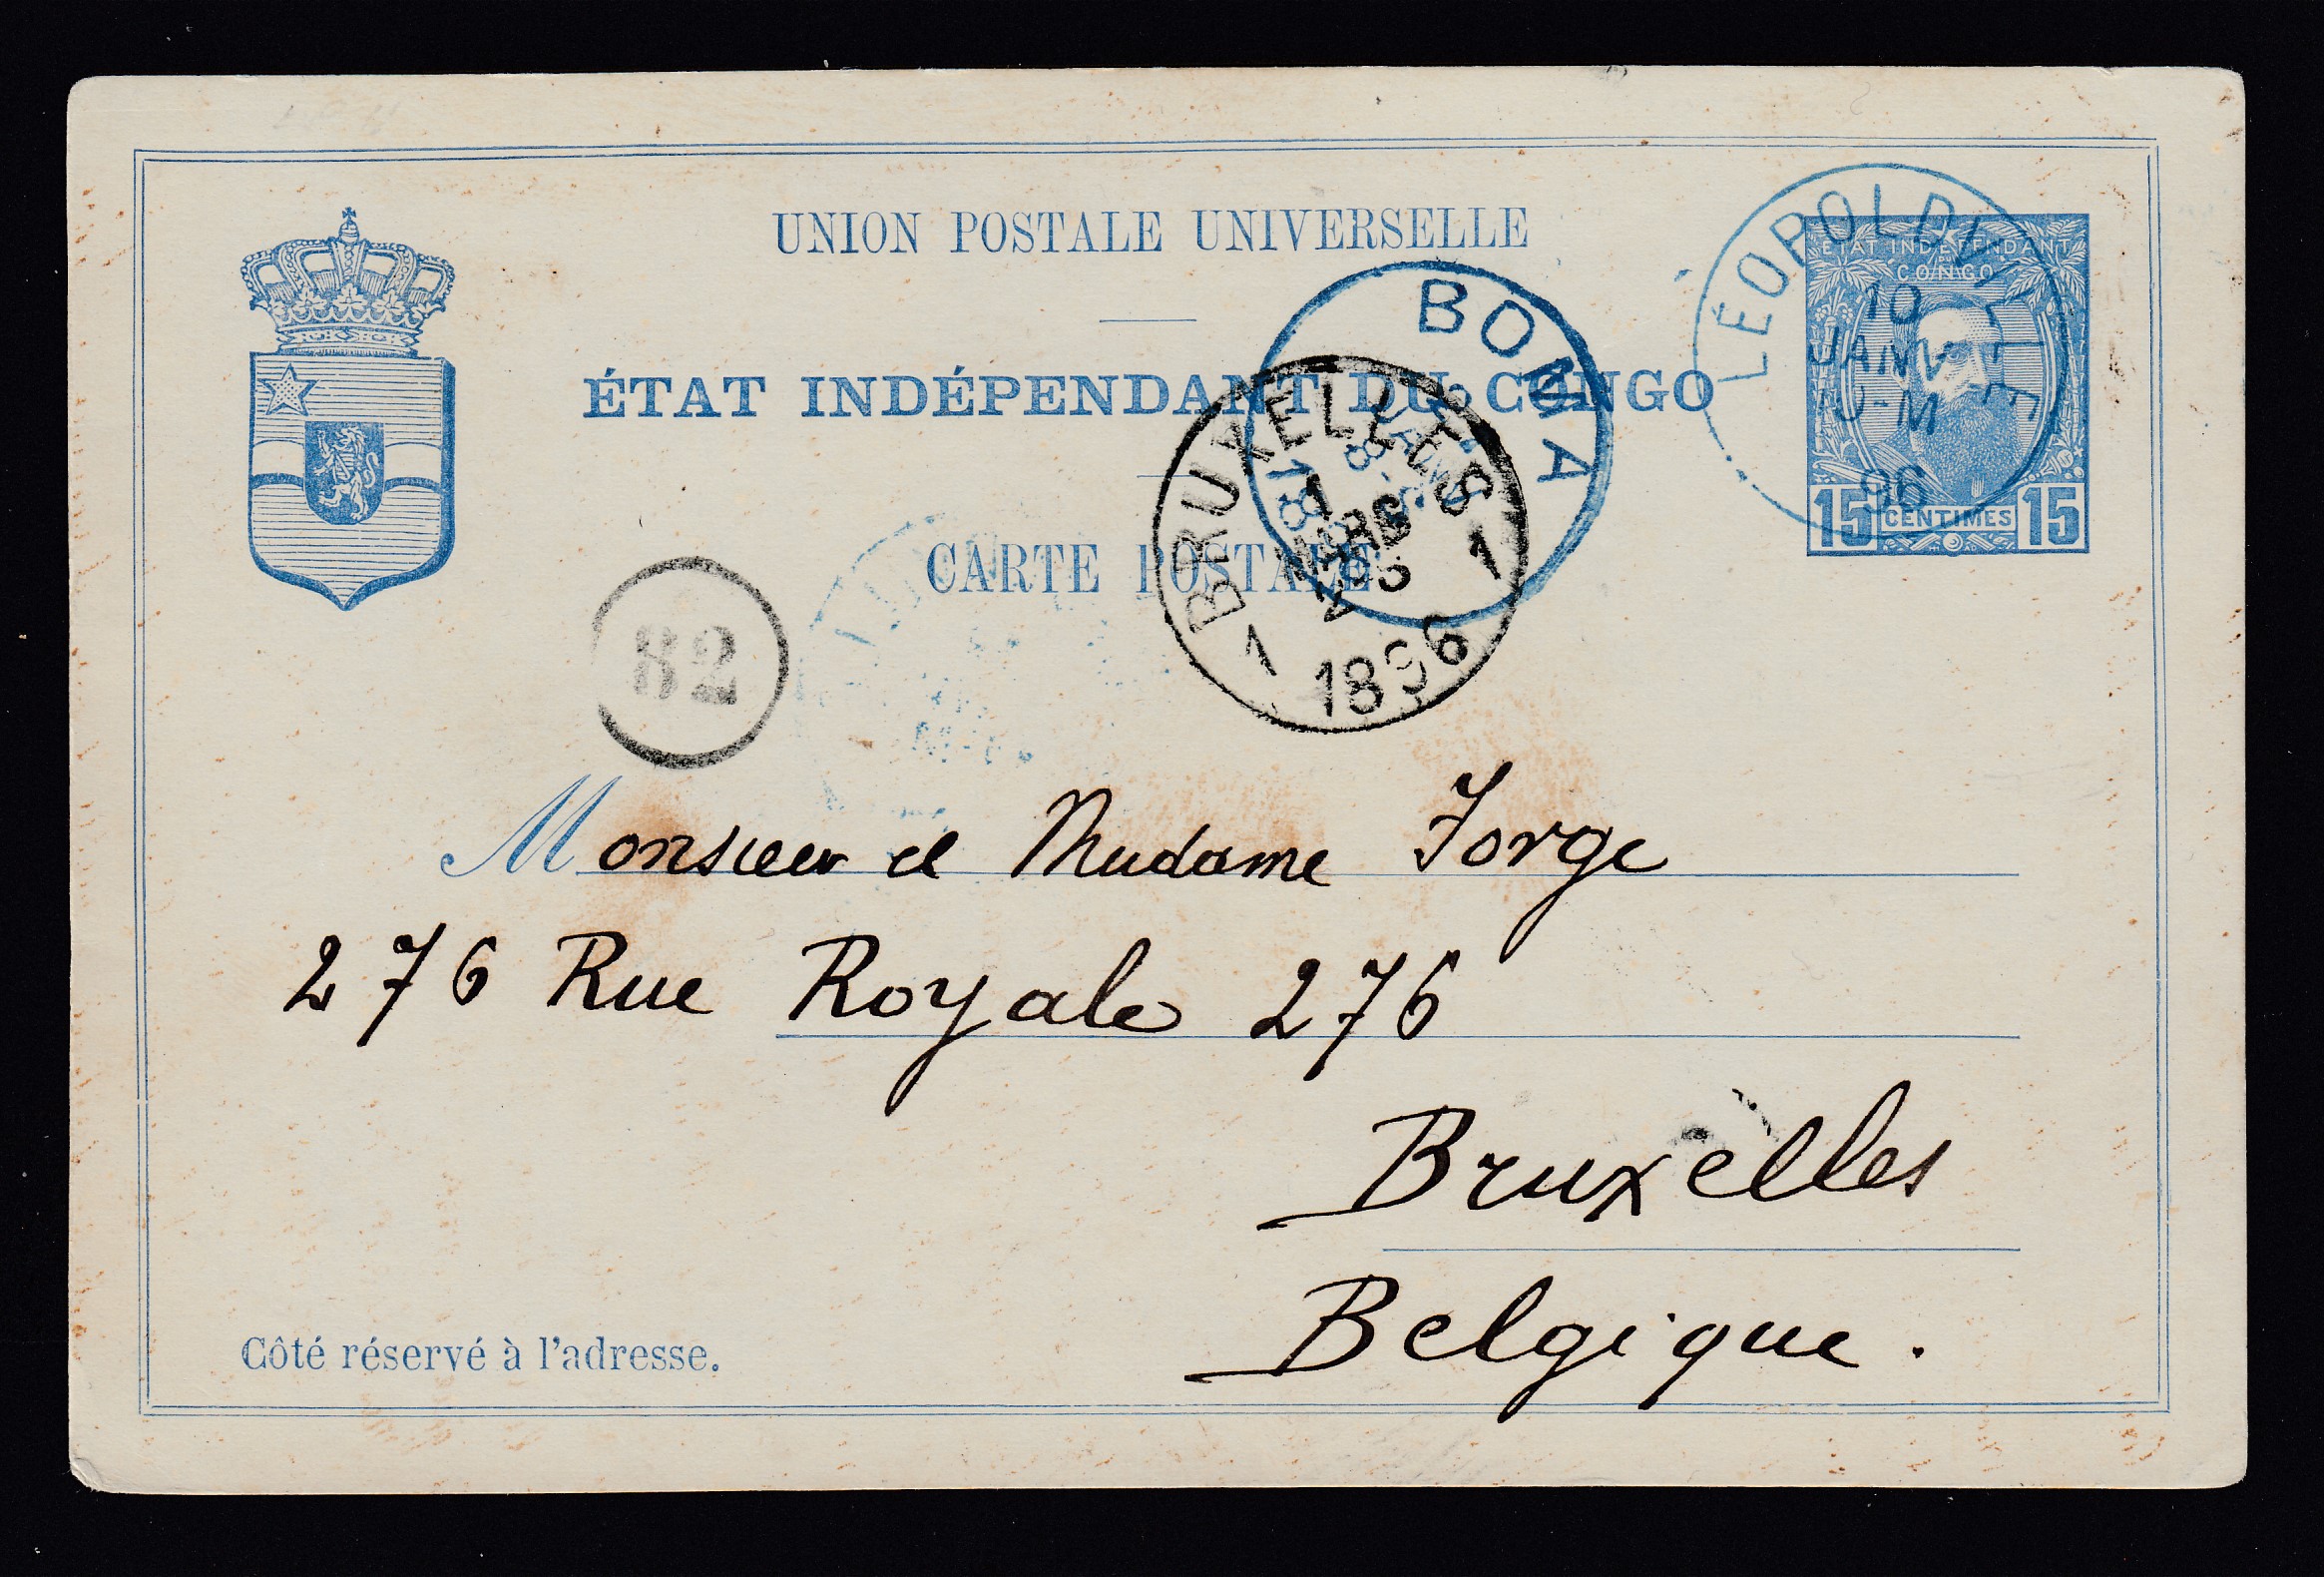 UNION POSTALE UNIVERSELLE
ÉTAT INDÉPENDANT DU CONGO
CARTE POSTALE
ÉTAT INDÉPENDANT
DU
CONGO
15 CENTIMES 15
LÉOPOLDVILLE
10
JANV
96
BOMA
BRUXELLES
1
MARS
1 1
1896
82
Monsieur et Madame Jorge
276 Rue Royale 276
Bruxelles
Belgique.
Côté réservé à l'adresse.